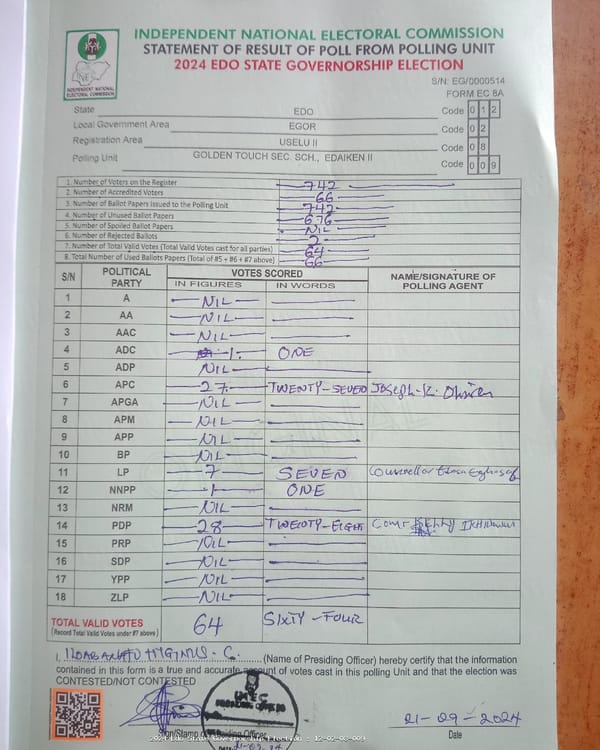 INDEPENDENT NATIONAL ELECTORAL COMMISSION
STATEMENT OF RESULT OF POLL FROM POLLING UNIT
2024 EDO STATE GOVERNORSHIP ELECTION
INDEPENDENT NATIONAL ELECTORAL COMMISSION
S/N: EG/0000514
FORM EC 8A
State EDO Code 0 1 2
Local Government Area EGOR Code 0 2
Registration Area USELU II Code 0 8
Polling Unit GOLDEN TOUCH SEC. SCH., EDAIKEN II Code 0 0 9
1. Number of Voters on the Register 742
2. Number of Accredited Voters 66
3. Number of Ballot Papers Issued to the Polling Unit 742
4. Number of Unused Ballot Papers 676
5. Number of Spoiled Ballot Papers NIL
6. Number of Rejected Ballots 2
7. Number of Total Valid Votes (Total Valid Votes cast for all parties) 64
8. Total Number of Used Ballots Papers (Total of #5 + #6 + #7 above) 66
S/N POLITICAL PARTY VOTES SCORED NAME/SIGNATURE OF POLLING AGENT
IN FIGURES IN WORDS
1 A NIL
2 AA NIL
3 AAC NIL
4 ADC 1 ONE
5 ADP NIL
6 APC 27 TWENTY-SEVEN Joseph
7 APGA NIL
8 APM NIL
9 APP NIL
10 BP NIL
11 LP 7 SEVEN
12 NNPP 1 ONE
13 NRM NIL
14 PDP 28 TWENTY-EIGHT Comr
15 PRP NIL
16 SDP NIL
17 YPP NIL
18 ZLP NIL
TOTAL VALID VOTES 64 SIXTY-FOUR
(Record Total Valid Votes under #7 above)
I, (Name of Presiding Officer) hereby certify that the information
contained in this form is a true and accurate account of votes cast in this polling Unit and that the election was
CONTESTED/NOT CONTESTED
Sign/Stamp
21-09-2024